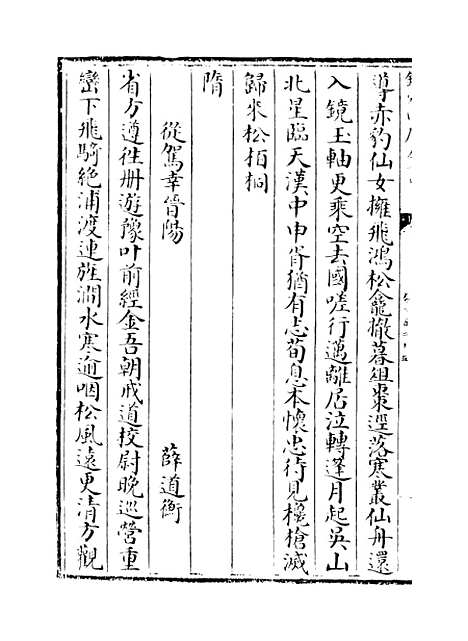 導赤豹仙女擁飛鴻松龕撤暮俎棗逕落寒叢仙舟還
入鏡玉軸更乘空去國嗟行邁離居泣轉蓬月起吳山
北星臨天漢中申胥猶有志荀息本懷忠待見欃槍滅
歸來松栢桐
隋
從駕幸晉陽　薛道衡
省方遵徃冊遊豫叶前經金吾朝戒道校尉晚巡營重
巒下飛騎絶浦渡連旌澗水寒逾咽松風遠更清方觀